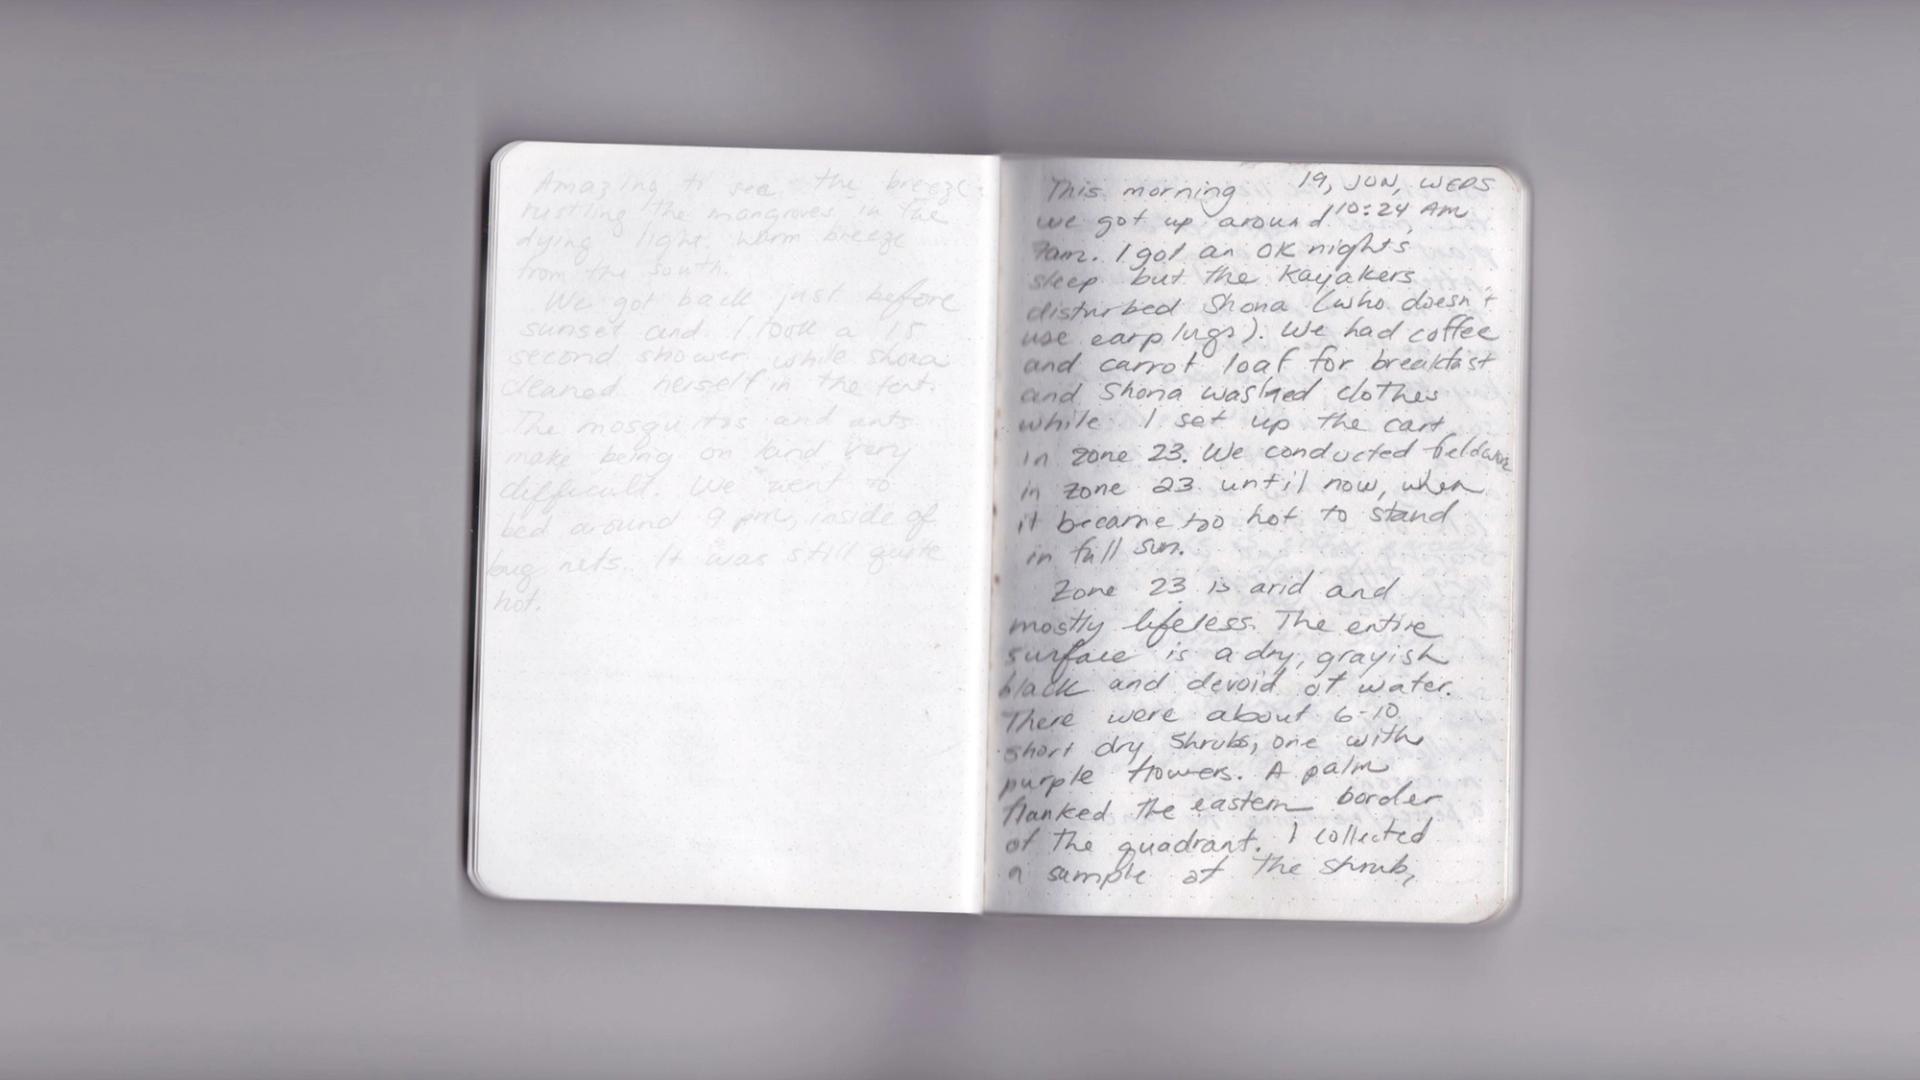 Amazing to see the breeze
rustling the mangroves in the
dying light. Warm breeze
from the south.
We got back just before
sunset and I took a 15
second shower while Shona
cleaned herself in the tent.
The mosquitos and ants
make being on land very
difficult. We went to
bed around 9 pm, inside of
bug nets. It was still quite
hot.
19, JUN, WEDS
10:24 AM
This morning
we got up around
7am. I got an OK nights
sleep but the Kayakers
disturbed Shona (who doesn't
use earplugs). We had coffee
and carrot loaf for breakfast
and Shona washed clothes
while I set up the cart
in zone 23. We conducted fieldwork
in zone 23 until now, when
it became too hot to stand
in full sun.
Zone 23 is arid and
mostly lifeless. The entire
surface is a dry, grayish
black and devoid of water.
There were about 6-10
short dry shrubs, one with
purple flowers. A palm
flanked the eastern border
of the quadrant. I collected
a sample of the shrub,